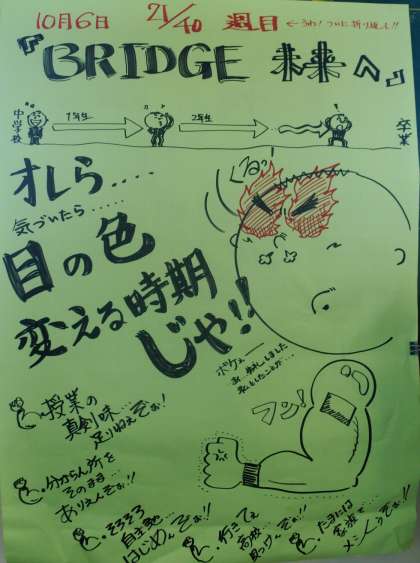 10月6日 21/40 週目 ←うわ!ついに折り返し!!
『BRIDGE 未来へ』
中学校 1年生 2年生 卒業
オレら....
気づいたら.....
くるっ
目の色
変える時期
じゃ!!
ボケェー
あ、失礼しました
私としたことが...
フン!
授業の
真剣味...
足りねえぞぉ!
分からん所を
そのまま...
ありえんぞぉ!!
そろそろ
自主勉...
はじめんぞぉ!!
行きてぇ
高校...
見つけんぞぉ!!
たまには
家族で...
メシくうぞぉ!!